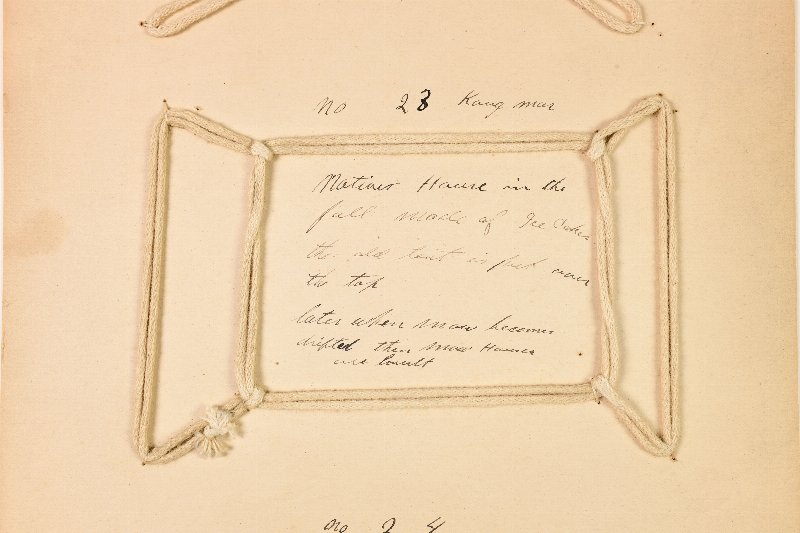 no 23 Kang mur
Natives House in the
fall made of Ice Cakes
the old tent is put over
the top
later when snow becomes
drifted then snow Houses
are built
no 24